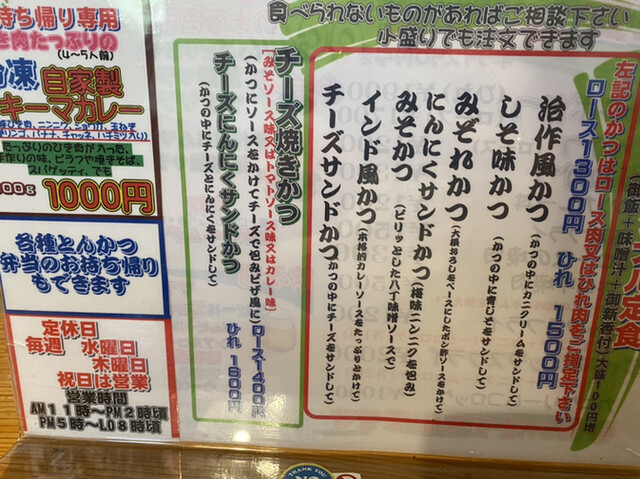 食べられないものがあればご相談下さい
小盛りでも注文できます
定食
(御飯+味噌汁+御新香付)大盛100円増
左記のかつはロース肉又はひれ肉をご指定下さい
ロース1300円 ひれ 1500円
治作風かつ(かつの中にカニクリームをサンドして)
しそ味かつ(かつの中に青じそをサンドして)
みぞれかつ(大根おろしをベースにしたポン酢ソースをかけて)
にんにくサンドかつ(梅味ニンニクを包み)
みそかつ(ピリッとした八丁味噌ソースで)
インド風かつ(本格的カレーソースをたっぷりとかけて)
チーズサンドかつ(かつの中にチーズをサンドして)
チーズ焼きかつ
[みそソース味又はトマトソース味又はカレー味]
(かつにソースをかけてチーズで包みピザ風に)
チーズにんにくサンドかつ
(かつの中にチーズとにんにくをサンドして)
ロース1400円
ひれ 1600円
持ち帰り専用
き肉たっぷりの
(4〜5人前)
凍 自家製
キーマカレー
バナナ、チャツネ、ハチミツ入り)
たっぷりのひき肉が入った、
手作りの味、ピラフや焼きそば、
スパゲッティ、でも
00g 1000円
各種とんかつ
弁当のお持ち帰り
もできます
定休日
毎週 水曜日
木曜日
祝日は営業
営業時間
AM11時〜PM2時頃
PM5時〜LO8時頃
THANK YOU